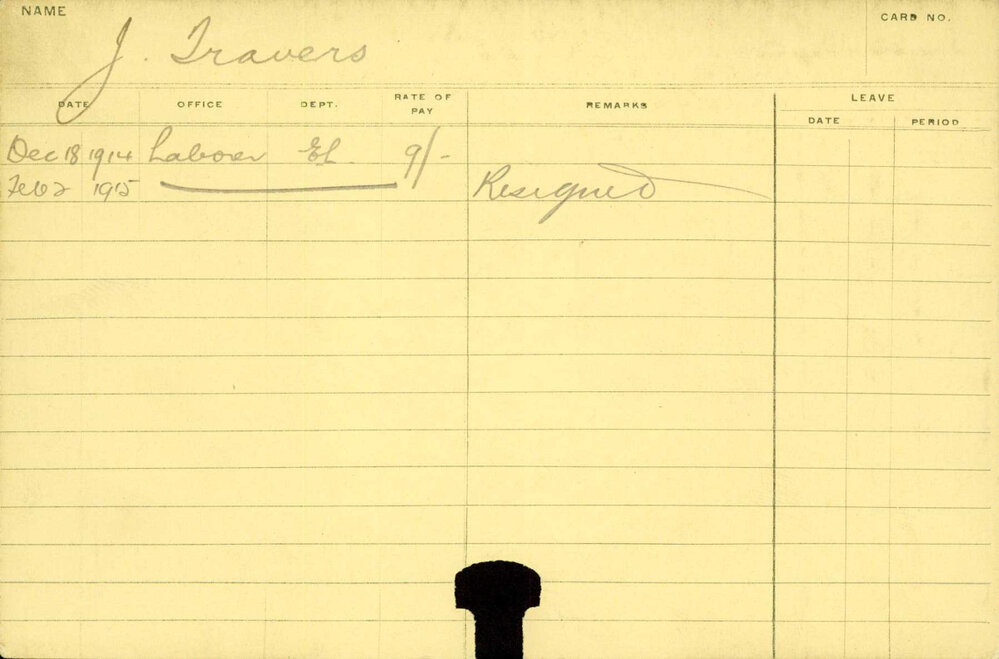 NAME
CARD NO.
J. Travers
DATE OFFICE DEPT. RATE OF PAY REMARKS LEAVE
DATE PERIOD
Dec 18 1914 Laborer El. 9/-
Feb 2 1915 Resigned